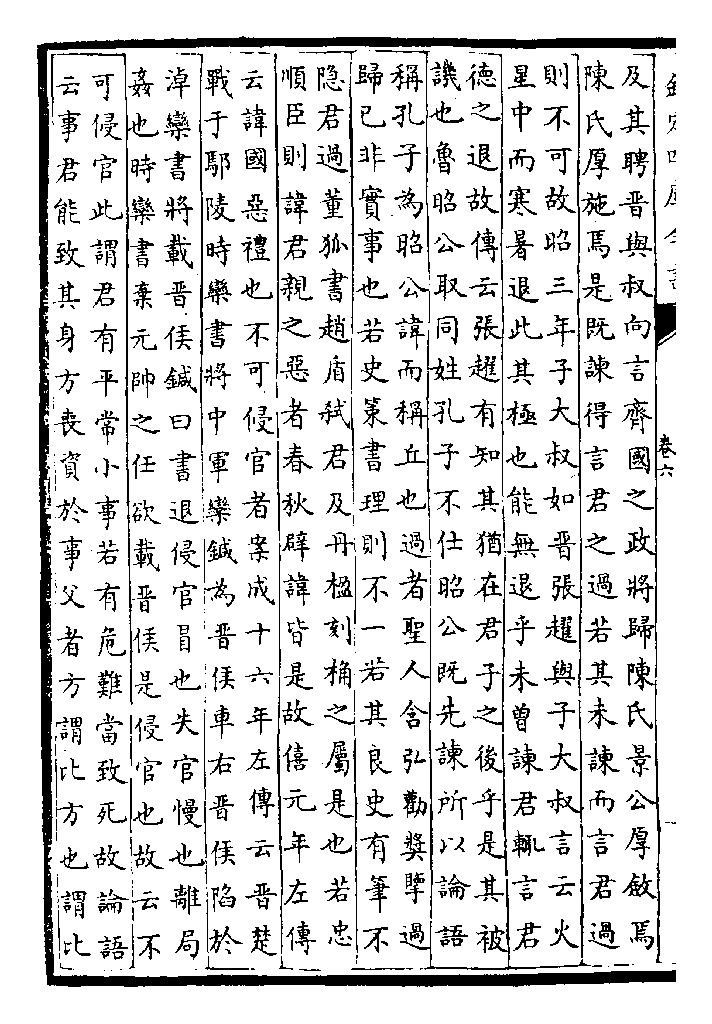 欽定四庫全書
卷六
及其聘晋與叔向言齊國之政將歸陳氏景公厚斂焉
陳氏厚施焉是既諫得言君之過若其未諫而言君過
則不可故昭三年子大叔如晋張趯與子大叔言云火
星中而寒暑退此其極也能無退乎未曽諫君輒言君
德之退故傳云張趯有知其猶在君子之後乎是其被
譏也魯昭公取同姓孔子不仕昭公既先諫所以論語
稱孔子為昭公諱而稱丘也過者聖人含弘勸奬擥過
歸已非實事也若史策書理則不一若其良史有筆不
隐君過董狐書趙盾弑君及丹楹刻桷之屬是也若忠
順臣則諱君親之惡者春秋辟諱皆是故僖元年左傳
云諱國惡禮也不可侵官者案成十六年左傳云晋楚
戰于鄢陵時欒書將中軍欒鍼為晋侯車右晋侯陷於
淖欒書將載晋侯鍼曰書退侵官冒也失官慢也離局
姦也時欒書棄元帥之任欲載晋侯是侵官也故云不
可侵官此謂君有平常小事若有危難當致死故論語
云事君能致其身方喪資於事父者方謂比方也謂比